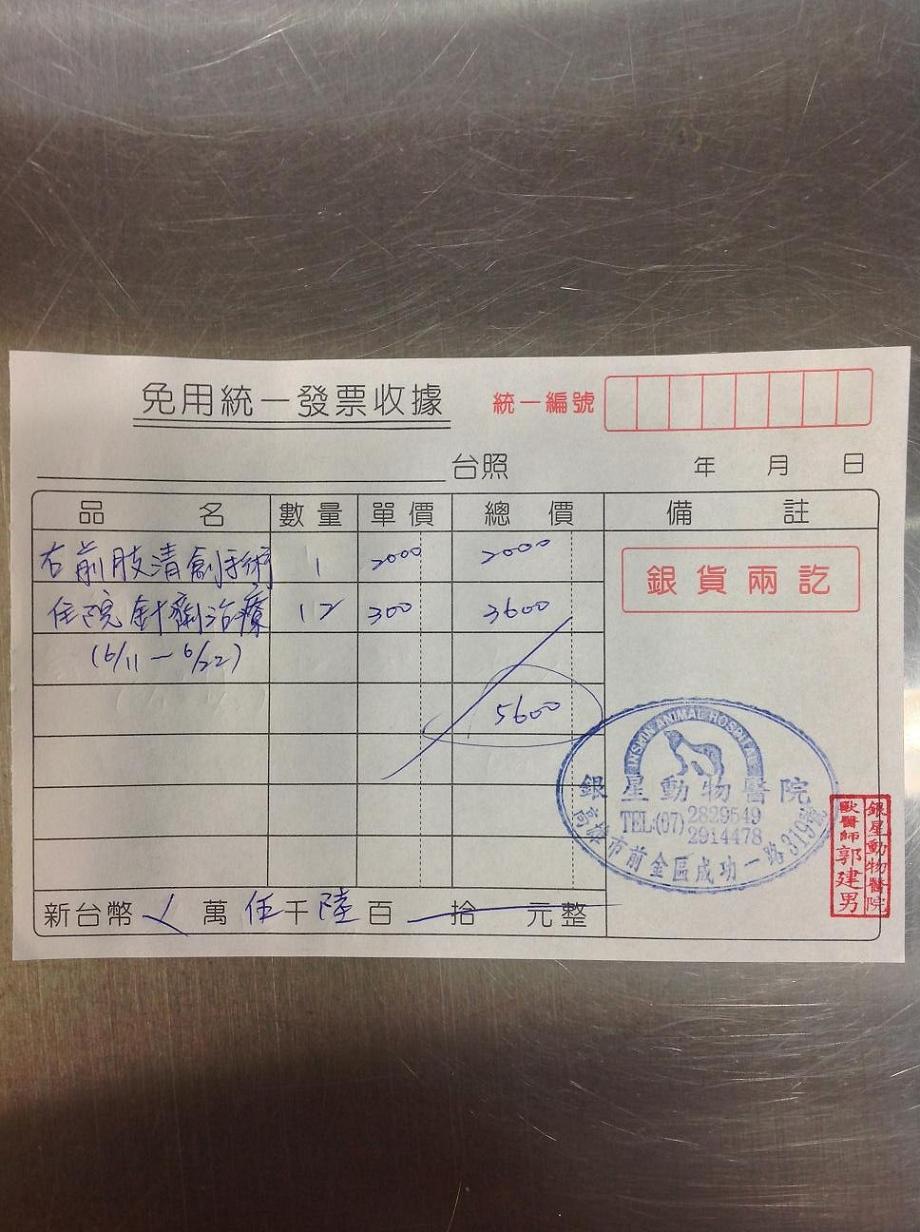 免用統一發票收據
統一編號
台照 年 月 日
品名 數量 單價 總價 備註
右前肢清創手術 1 2000 2000
銀貨兩訖
住院針劑治療 12 300 3600
(6/11-6/22)
5600
INSHIN ANIMAL HOSPITAL
銀星動物醫院
TEL:(07) 2829549
2914478
高雄市前金區成功一路319號
銀星動物醫院
獸醫師郭建男
新台幣 萬伍千陸百拾元整